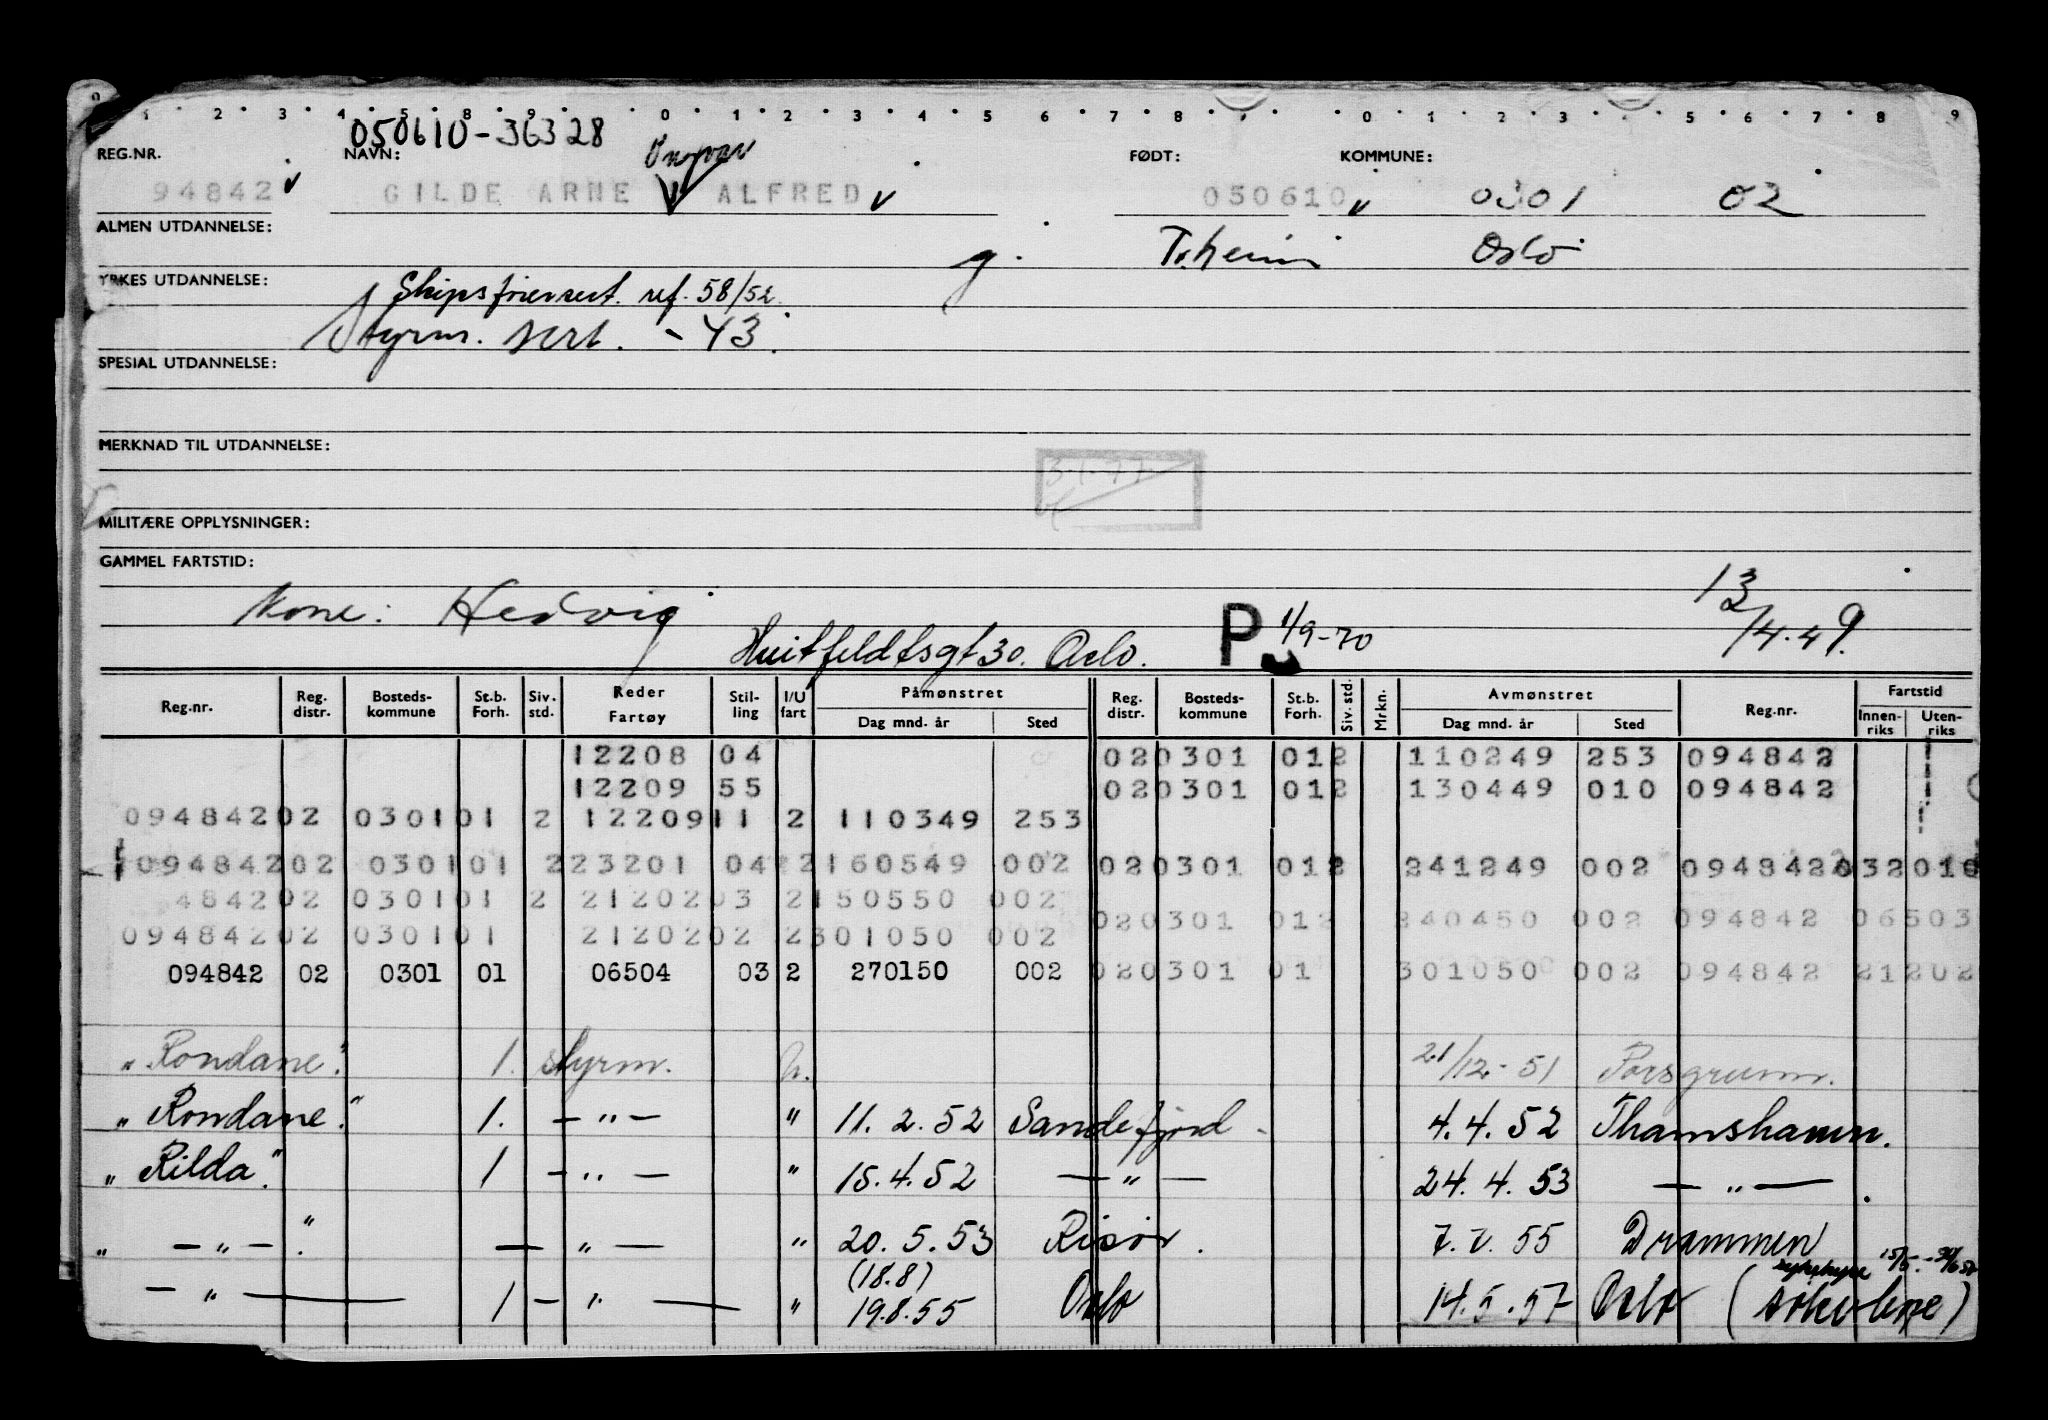 050610-36328
REG.NR. NAVN: Yngvar FØDT: KOMMUNE:
94842 GILDE ARNE V ALFRED 050610 0301 02
ALMEN UTDANNELSE:
g. Tr.heim Oslo
YRKES UTDANNELSE: Skipsførersert. utf. 58/52
Styrm. sert. - 43.
SPESIAL UTDANNELSE:
MERKNAD TIL UTDANNELSE:
3.1.77
MILITÆRE OPPLYSNINGER:
GAMMEL FARTSTID:
Kone: Hedvig 13/4.49.
Huitfeldtsgt 30. Oslo. P 1/9-70
Reg.nr. Reg. distr. Bosteds- kommune St.b. Forh. Siv. std. Reder Fartøy Stil- ling I/U fart Påmønstret Dag mnd. år Sted Reg. distr. Bosteds- kommune St.b. Forh. Siv. std. Mrkn. Avmønstret Dag mnd. år Sted Reg.nr. Fartstid Innen- riks Uten- riks
12208 04 020301 012 110249 253 094842
12209 55 020301 012 130449 010 094842
09484202 030101 2 1220911 2 110349 253
09484202 030101 223201 04 2160549 002 020301 012 241249 002 094842 032010
484202 030101 2 2120203 2150550 002
020301 012 240450 002 094842 06503
09484202 030101 2120202 2301050 002
094842 02 0301 01 06504 03 2 270150 002 020301 01 301050 002 094842 21202
"Rondane". 1. styrm. u. 21/12-51 Porsgrunn.
"Rondane". 1. -"- " 11.2.52 Sandefjord - 4.4.52 Thamshamn.
"Rilda". 1 -"- " 15.4.52 -"- 24.4.53 -"-.
" -"- ". -"- " 20.5.53 Risør. 7.7.55 Drammen
(18.8) 15/5
-"- 1 -"- " 19.8.55 Oslo 14.5.57 Oslo